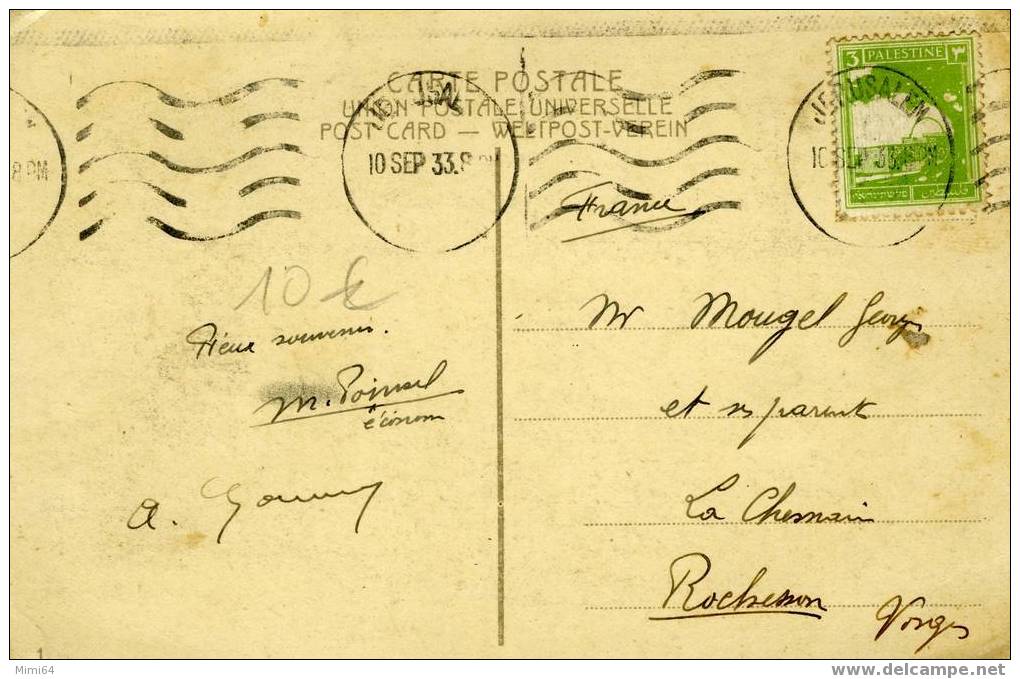 CARTE POSTALE
UNION POSTALE UNIVERSELLE
POST CARD — WELTPOST-VEREIN
3 PALESTINE ٣
JERUSALEM
10 SEP 33.8 PM
10 SEP 33.8 PM
8 PM
France
10 €
Pieux souvenir.
M. Poinsel
économ
a.
Mr Mougel Georges
et ses parents
La Chesnaie
Rochesson
Vosges
1
Mimi64
www.delcampe.net